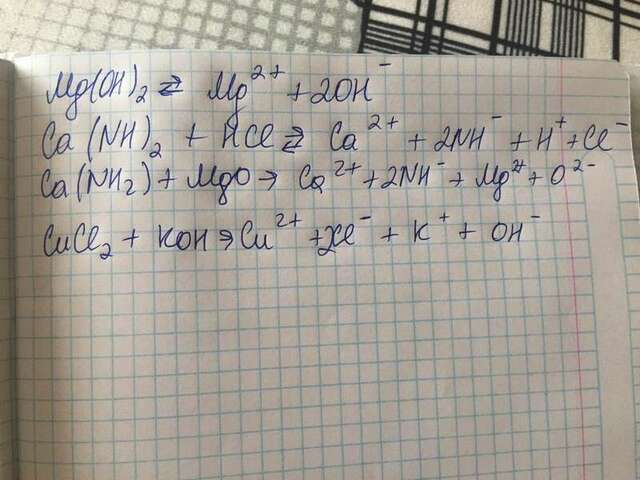 Mg(OH)₂ ⇄ Mg²⁺ + 2OH⁻
Ca(NH)₂ + HCl ⇄ Ca²⁺ + 2NH⁻ + H⁺ + Cl⁻
Ca(NH₂) + MgO → Ca²⁺ + 2NH⁻ + Mg²⁺ + O²⁻
CuCl₂ + KOH → Cu²⁺ + 2Cl⁻ + K⁺ + OH⁻